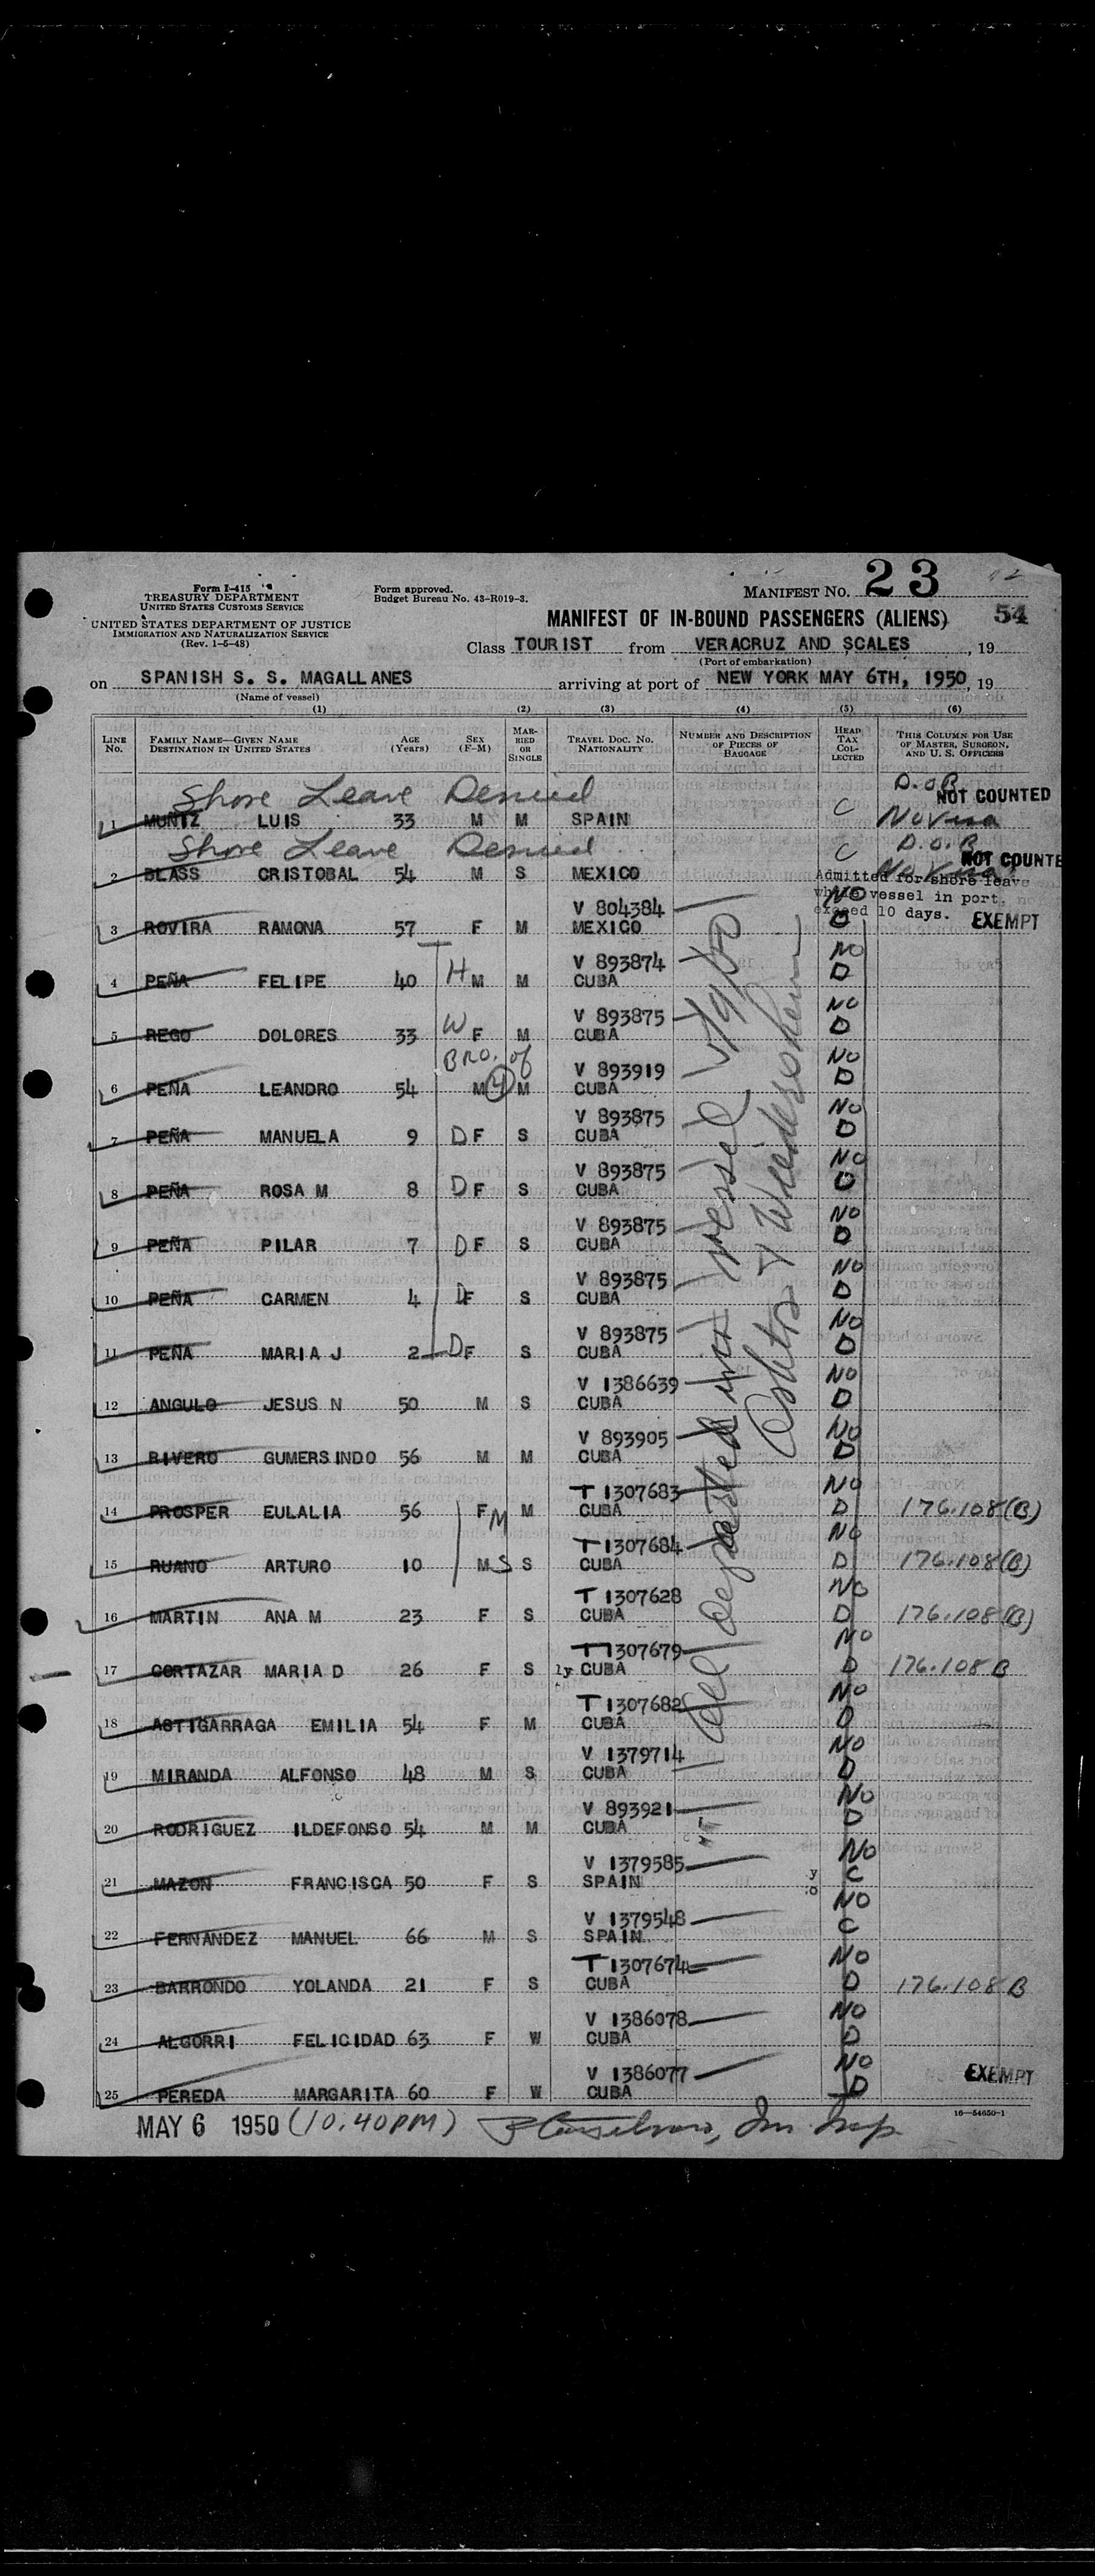 Form I-415
TREASURY DEPARTMENT
UNITED STATES CUSTOMS SERVICE
UNITED STATES DEPARTMENT OF JUSTICE
IMMIGRATION AND NATURALIZATION SERVICE
(Rev. 1-5-48)
Form approved.
Budget Bureau No. 43-R019-3.
MANIFEST NO. 23
54
MANIFEST OF IN-BOUND PASSENGERS (ALIENS)
Class TOURIST from VERACRUZ AND SCALES, 19
(Port of embarkation)
on SPANISH S. S. MAGALLANES arriving at port of NEW YORK MAY 6TH, 1950, 19
(Name of vessel)
(1) (2) (3) (4) (5) (6)
LINE No. FAMILY NAME—GIVEN NAME DESTINATION IN UNITED STATES AGE (Years) SEX (F-M) MARRIED OR SINGLE TRAVEL DOC. NO. NATIONALITY NUMBER AND DESCRIPTION OF PIECES OF BAGGAGE HEAD TAX COLLECTED THIS COLUMN FOR USE OF MASTER, SURGEON, AND U. S. OFFICERS
Shore Leave Denied D.O.B NOT COUNTED
1 MUNTZ LUIS 33 M M SPAIN C No Visa
Shore Leave Denied D.O.B NOT COUNTE
2 BLASS CRISTOBAL 54 M S MEXICO C No Visa
Admitted for shore leave
while vessel in port, no
exceed 10 days. EXEMPT
V 804384 NO
3 ROVIRA RAMONA 57 F M MEXICO D
V 893874 NO
4 PEÑA FELIPE 40 H M M CUBA D
V 893875 NO
5 REGO DOLORES 33 W F M CUBA D
BRO. of V 893919 NO
6 PEÑA LEANDRO 54 M 4 M CUBA D
V 893875 NO
7 PEÑA MANUELA 9 D F S CUBA D
V 893875 NO
8 PEÑA ROSA M 8 D F S CUBA D
V 893875 NO
9 PEÑA PILAR 7 D F S CUBA D
V 893875 NO
10 PEÑA CARMEN 4 D F S CUBA D
V 893875 NO
11 PEÑA MARIA J 2 D F S CUBA D
V 1386639 NO
12 ANGULO JESUS N 50 M S CUBA D
V 893905 NO
13 RIVERO GUMERSINDO 56 M M CUBA D
T 1307683 NO
14 PROSPER EULALIA 56 F M M CUBA D 176.108(B)
T 1307684 NO
15 RUANO ARTURO 10 M S S CUBA D 176.108(B)
T 1307628 NO
16 MARTIN ANA M 23 F S CUBA D 176.108(B)
T 1307679 NO
17 CORTAZAR MARIA D 26 F S ly CUBA D 176.108 B
T 1307682 NO
18 ASTIGARRAGA EMILIA 54 F M CUBA D
V 1379714 NO
19 MIRANDA ALFONSO 48 M S CUBA D
V 893921 NO
20 RODRIGUEZ ILDEFONSO 54 M M CUBA D
V 1379585 NO
21 MAZON FRANCISCA 50 F S SPAIN C
V 1379548 NO
22 FERNANDEZ MANUEL 66 M S SPAIN C
T 1307674 NO
23 BARRONDO YOLANDA 21 F S CUBA D 176.108 B
V 1386078 NO
24 ALGORRI FELICIDAD 63 F W CUBA D
V 1386077 NO EXEMPT
25 PEREDA MARGARITA 60 F W CUBA D
All departed in vessel
MAY 6 1950 (10.40PM) Im. Insp.
16—54650-1